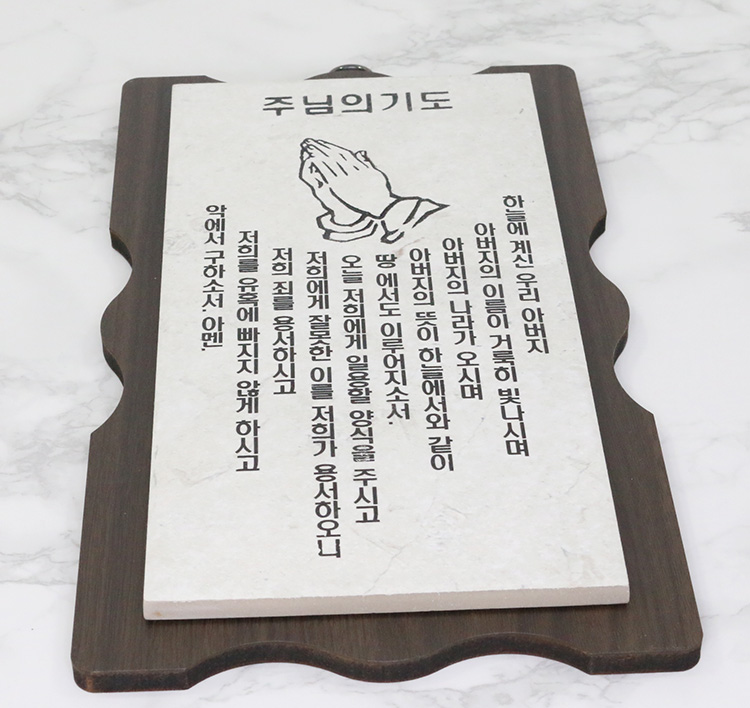 주님의기도
하늘에 계신 우리 아버지
아버지의 이름이 거룩히 빛나시며
아버지의 나라가 오시며
아버지의 뜻이 하늘에서와 같이
땅 에서도 이루어지소서.
오늘 저희에게 일용할 양식을 주시고
저희에게 잘못한 이를 저희가 용서하오니
저희 죄를 용서하시고
저희를 유혹에 빠지지 않게 하시고
악에서 구하소서. 아멘.